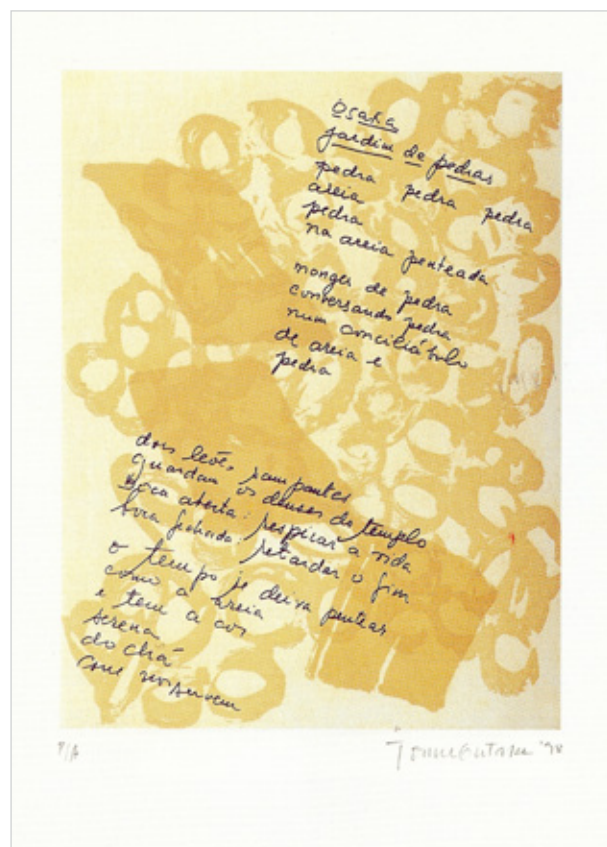 Osaka
jardim de pedras
pedra pedra pedra
areia
pedra
na areia penteada
monges de pedra
conversando pedra
num conciliábulo
de areia e
pedra
dois leões rampantes
guardam os deuses do templo
boca aberta: respirar a vida
boca fechada: retardar o fim
o tempo se deixa pentear
como a areia
e tem a cor
serena
do chá
que nos servem
P/A
'98